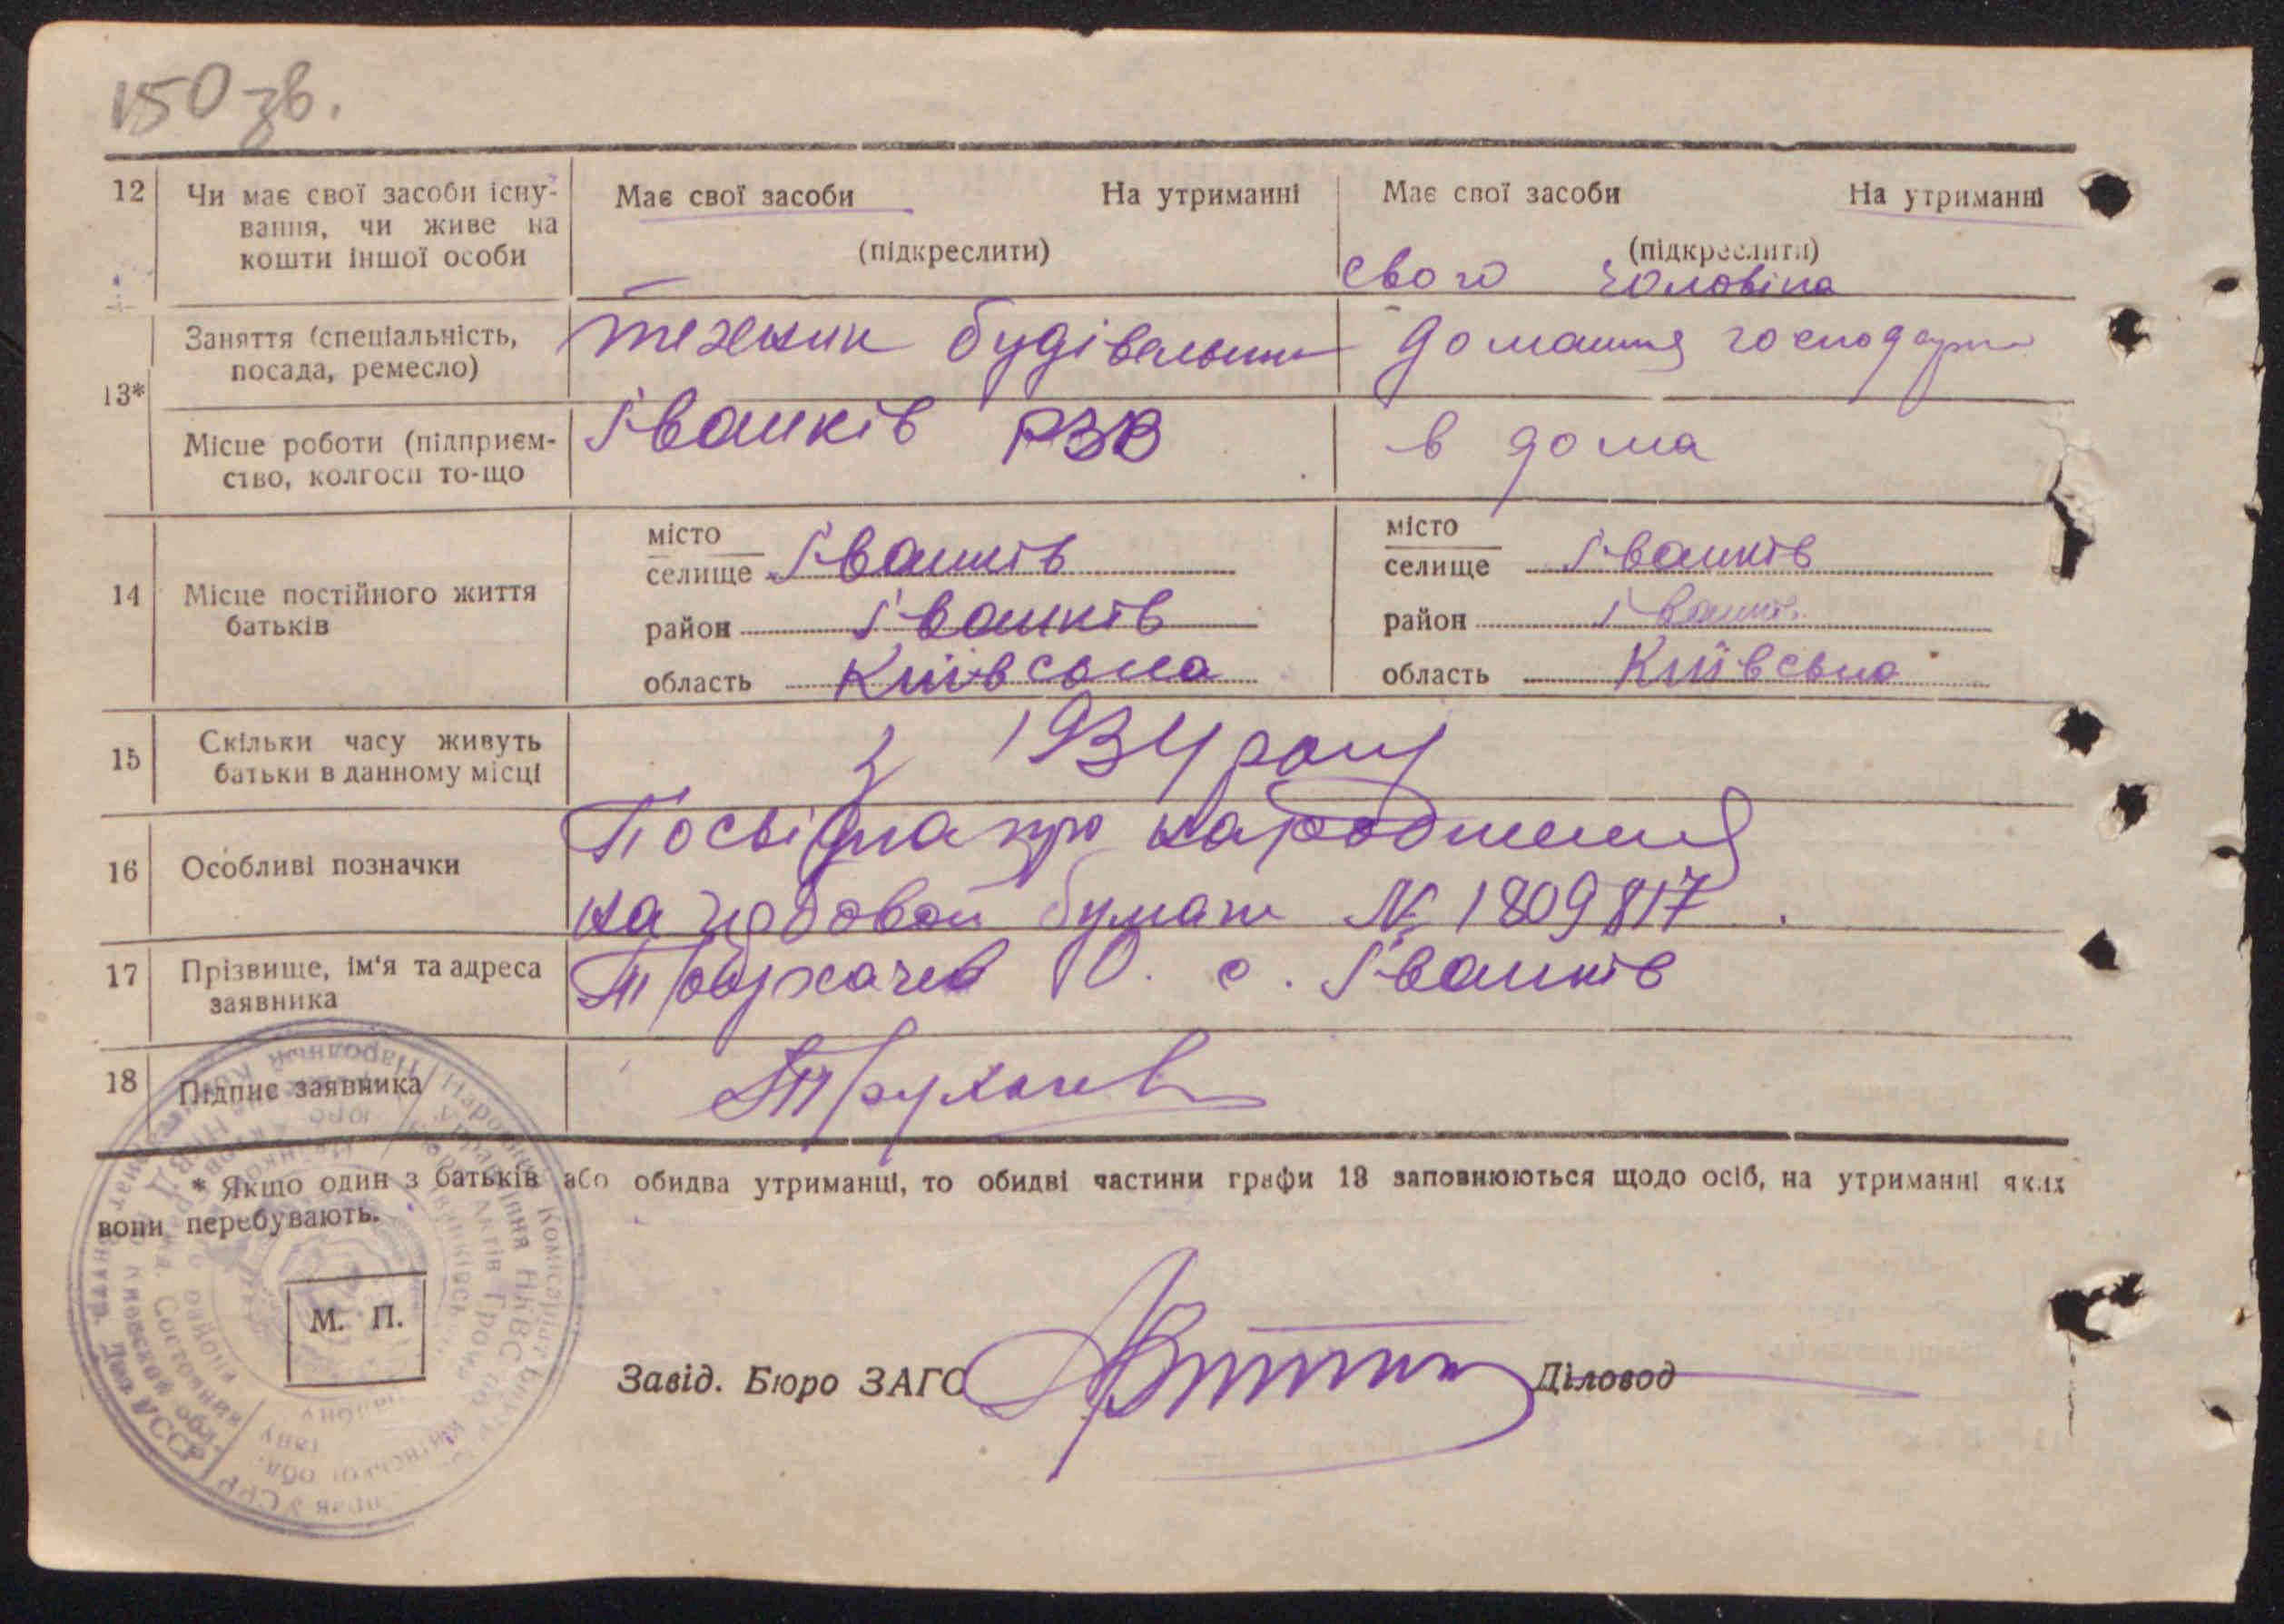 150 зв.
12 Чи має свої засоби існу-
вання, чи живе на
кошти іншої особи
Має свої засоби На утриманні
(підкреслити)
Має свої засоби На утриманні
(підкреслити)
свого чоловіка
13*
Заняття (спеціальність,
посада, ремесло)
технік будівельник
домашня господарка
Місце роботи (підприєм-
ство, колгосп то-що
Іванків РЗВ
в дома
14 Місце постійного життя
батьків
місто
селище Іванків
район Іванків
область Київська
місто
селище Іванків
район Іванків
область Київська
15 Скільки часу живуть
батьки в данному місці
з 1934 року
16 Особливі позначки
Посвідка про народження
на гербовой бумаги № 1809817.
17 Прізвище, ім'я та адреса
заявника
Трухачев О. с. Іванків
18 Підпис заявника
Трухачев
* Якщо один з батьків або обидва утриманці, то обидві частини графи 13 заповнюються щодо осіб, на утриманні яких
вони перебувають.
М. П.
Завід. Бюро ЗАГС
Діловод